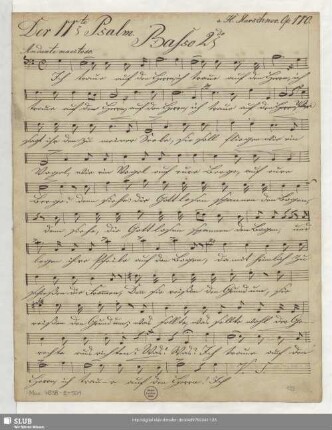 Der 11te Psalm. Basso 2do v. H. Marschner. Op. 170.
Andante maestoso
Ich traue auf den Herrn, ich traue auf den Herrn, ich
traue auf den Herrn, auf den Herrn, ich traue auf den Herrn
sagt ihr denn zu meiner Seele, sie soll fliegen wie ein
Vogel, wie ein Vogel auf eure Berge, auf eure
Berge. denn siehe die Gottlosen spannen den Bogen,
denn siehe, die Gottlosen spannen den Bogen, und
legen ihre Pfeile auf den Bogen, damit heimlich zu
schießen die Frommen, denn sie reißen den Grund um, sie
reißen den Grund um, was sollte, was sollte wohl der Ge-
rechte ausrichten? Was? Was? Ich traue auf den
Herrn, ich traue auf den Herrn! Ich
SLUB